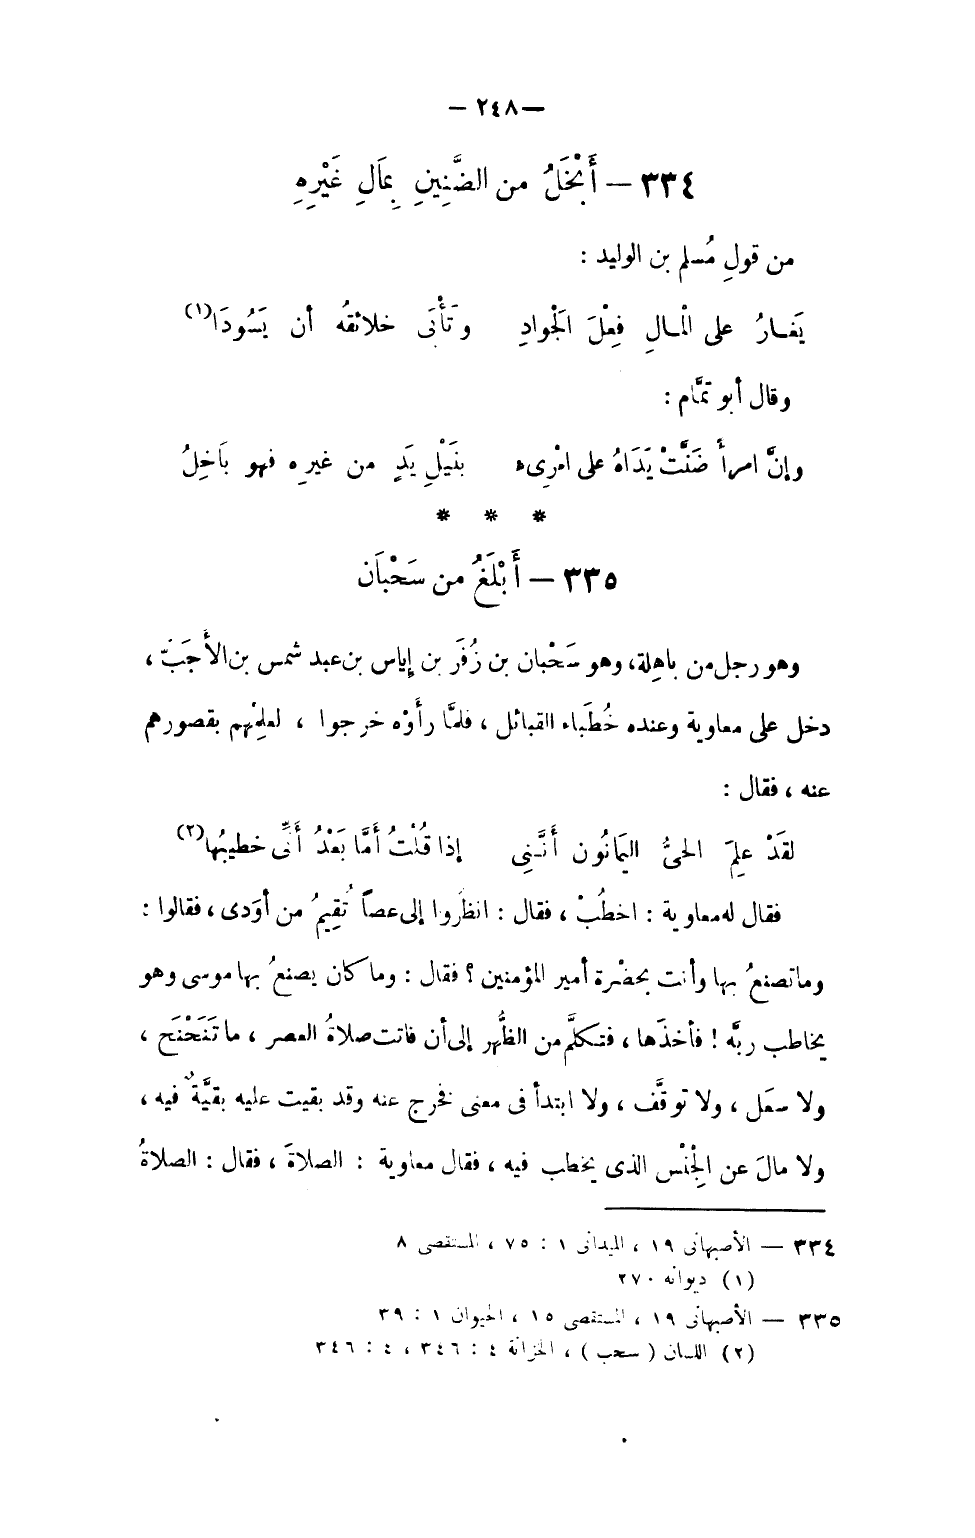 — ٢٤٨ —
٣٣٤ — أَبْخَلُ من الضَّنِينِ بِمَالِ غَيْرِهِ
من قولِ مُسلم بن الوليد :
يَغـارُ على المـالِ فِعْلَ الجَوادِ وتَأْبَى خلائقُه أن يَسُودَا(١)
وقال أبو تمَّام :
وإنَّ امرأً ضَنَّتْ يَدَاهُ على امْرِىء بنَيْلِ يَدٍ من غيرِه فهو بَاخِلُ
* * *
٣٣٥ — أَبْلَغُ من سَحْبَان
وهو رجل من باهِلة، وهو سَحْبان بن زُفَر بن إياس بن عبد شمس بن الأَجَبّ ،
دخل على معاوية وعنده خُطَباء القبائل ، فلمَّا رأَوْه خرجوا ، لعلمِهم بقصورهم
عنه ، فقال :
لقَدْ علِمَ الحىُّ اليمَانُون أَنَّـنِى إذا قُلْتُ أمَّا بَعْدُ أَنِّى خطيبُها(٢)
فقال له معاوية : اخطُبْ ، فقال : انظُروا إلى عصاً تُقِيمُ من أوَدى ، فقالوا :
وما تصنعُ بها وأنت بحضْرة أمير المؤمنين ؟ فقال : وما كان يصنعُ بها موسى وهو
يخاطب ربَّه ! فأخذَها ، فتكلَّم من الظُّهر إلى أن فاتت صلاةُ العصر ، ما تَنَحْنَح ،
ولا سعَل ، ولا توقَّف ، ولا ابتدأ فى معنى فخرج عنه وقد بقيت عليه بقيَّةٌ فيه ،
ولا مالَ عن الجِنْس الذى يخطب فيه ، فقال معاوية : الصلاةَ ، فقال : الصلاةُ
٣٣٤ — الأصبهانى ١٩ ، الميدانى ١ : ٧٥ ، المستقصى ٨
(١) ديوانه ٢٧٠
٣٣٥ — الأصبهانى ١٩ ، المستقصى ١٥ ، الحيوان ١ : ٣٩
(٢) اللسان ( سحب ) ، الخزانة ٤ : ٣٤٦ ، ٤ : ٣٤٦